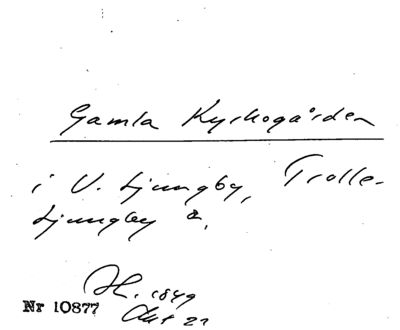 Gamla Kyrkogården
i V. Ljungby, Trolle-
Ljungby a.
H. 1849
Okt 21
Nr 10877